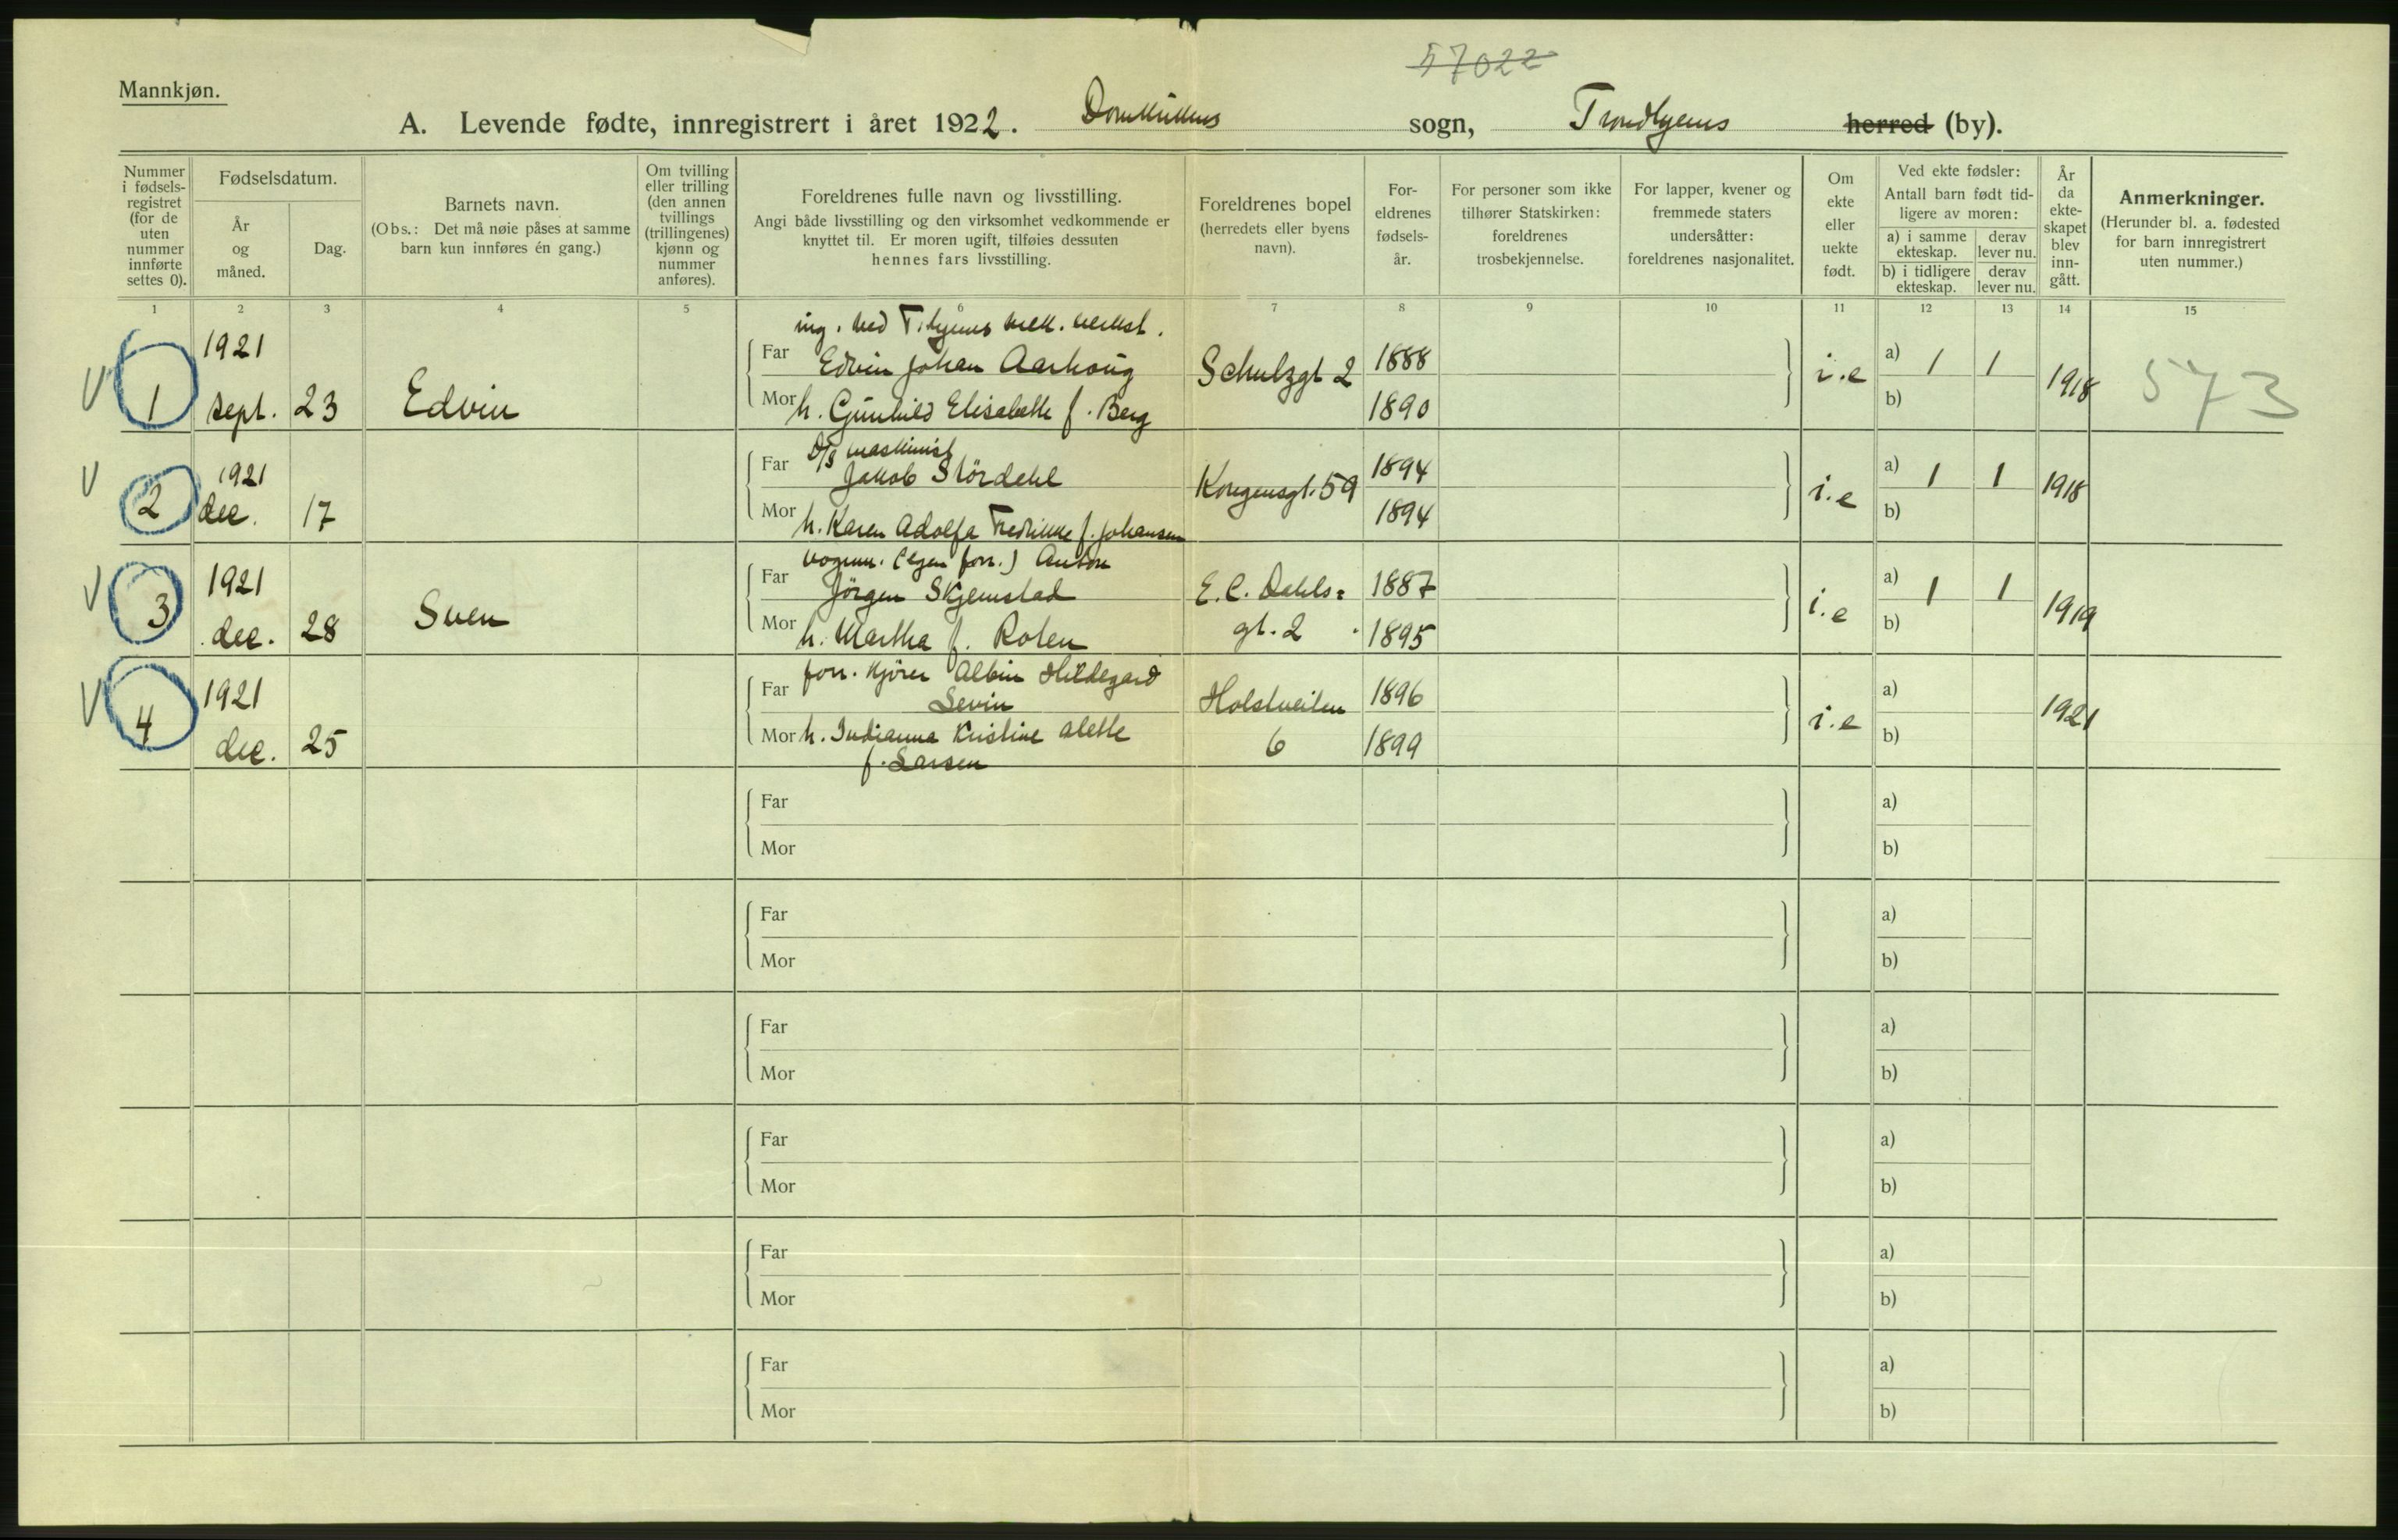 57022
Mannkjøn.
A. Levende fødte, innregistrert i året 1922. Domkirkens sogn, Trondhjems herred (by).
Nummer i fødsels-registret (for de uten nummer innførte settes 0).
Fødselsdatum.
År og måned.
Dag.
Barnets navn.
(Obs.: Det må nøie påses at samme barn kun innføres én gang.)
Om tvilling eller trilling (den annen tvillings (trillingenes) kjønn og nummer anføres).
Foreldrenes fulle navn og livsstilling.
Angi både livsstilling og den virksomhet vedkommende er knyttet til. Er moren ugift, tilføies dessuten hennes fars livsstilling.
Foreldrenes bopel
(herredets eller byens navn).
For-eldrenes fødsels-år.
For personer som ikke tilhører Statskirken: foreldrenes trosbekjennelse.
For lapper, kvener og fremmede staters undersåtter: foreldrenes nasjonalitet.
Om ekte eller uekte født.
Ved ekte fødsler:
Antall barn født tid-ligere av moren:
a) i samme ekteskap.
derav lever nu.
b) i tidligere ekteskap.
derav lever nu.
År da ekte-skapet blev inn-gått.
Anmerkninger.
(Herunder bl. a. fødested for barn innregistrert uten nummer.)
1 2 3 4 5 6 7 8 9 10 11 12 13 14 15
V 1
1921
sept. 23
Edvin
ing. ved T.hjems mek. verkst.
Far Edvin Johan Aarhoug
Mor h. Gunhild Elisabeth f. Berg
Schulzgt 2
1888
1890
i.e
a) 1 1
b)
1918
573
V 2
1921
dec. 17
D/S maskinist
Far Jakob Stördahl
Mor h. Karen Adolfa Fredrikke f. Johansen
Kongensgt. 59
1894
1894
i.e
a) 1 1
b)
1918
V 3
1921
dec. 28
Sven
vognm. (egen forr.) Anton
Far Jörgen Skjemstad
Mor h. Martha f. Rolen
E. C. Dahls=
gt. 2
1887
1895
i.e
a) 1 1
b)
1919
V 4
1921
dec. 25
forr. kjörer Albin Hildegard
Far Levin
Mor h. Indianna Kristine Alette
f. Larsen
Holstveiten
6
1896
1899
i.e
a)
b)
1921
Far
Mor
a)
b)
Far
Mor
a)
b)
Far
Mor
a)
b)
Far
Mor
a)
b)
Far
Mor
a)
b)
Far
Mor
a)
b)